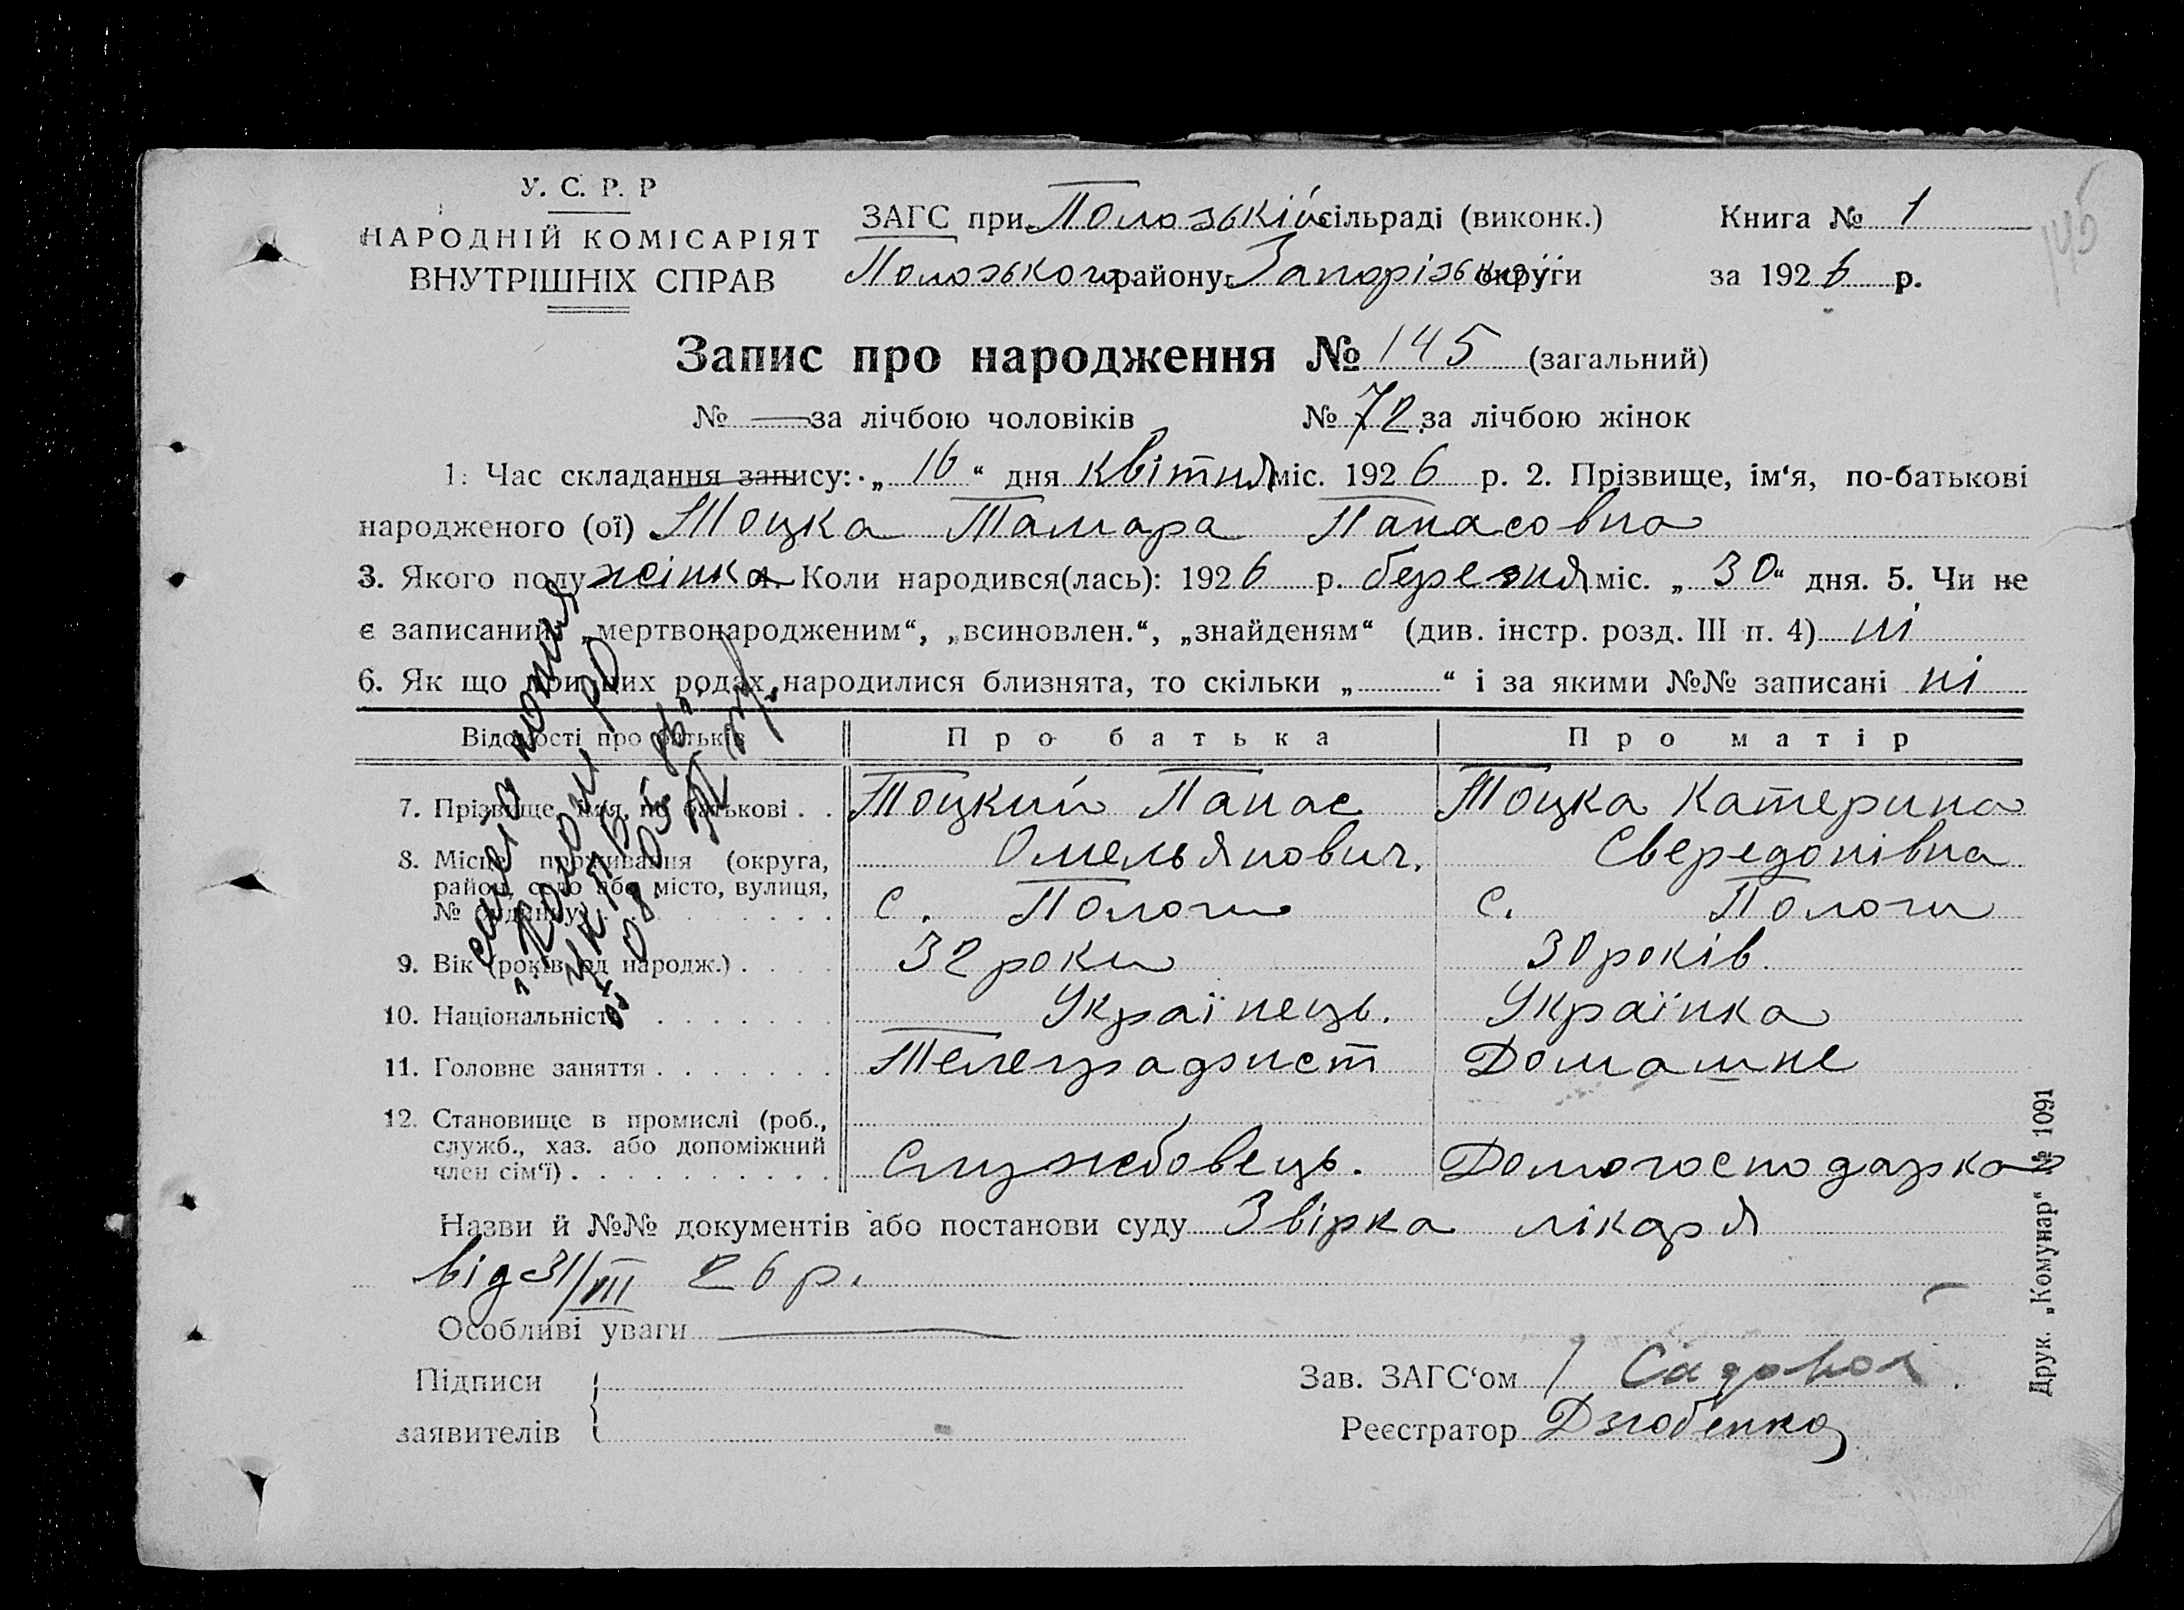 У. С. Р. Р
НАРОДНІЙ КОМІСАРІЯТ
ВНУТРІШНІХ СПРАВ
ЗАГС при Пологській сільраді (виконк.)
Пологського району Запорізької округи
Книга № 1
за 1926 р.
145
Запис про народження № 145 (загальний)
№ — за лічбою чоловіків № 72 за лічбою жінок
1. Час складання запису: „ 16 “ дня квітня міс. 1926 р. 2. Прізвище, ім‘я, по-батькові
народженого (ої) Тоцка Тамара Панасовна
3. Якого полу жінка 4. Коли народився(лась): 1926 р. березня міс. „ 30 “ дня. 5. Чи не
є записаний: „мертвонародженим“, „всиновлен.“, „знайденям“ (див. інстр. розд. III п. 4) ні
6. Як що при цих родах народилися близнята, то скільки „ “ і за якими №№ записані ні
Відомості про батьків Про батька Про матір
7. Прізвище, імя, по батькові . . Тоцкий Панас Тоцка Катерина
Омельянович. Сверидонівна
8. Місце проживання (округа,
район, село або місто, вулиця,
№ будинку) с. Пологи с. Пологи
9. Вік (років од народж.) 32 роки 30 років.
10. Національність Українець. Українка
11. Головне заняття Телеграфист Домашне
12. Становище в промислі (роб.,
служб., хаз. або допоміжний
член сім‘ї) Службовець. Домогосподарка
Назви й №№ документів або постанови суду Звірка лікаря
від 31/III 26 р.
Особливі уваги —
Підписи
заявителів
Зав. ЗАГС‘ом
Реєстратор
Друк. „Комунар“ № 1091